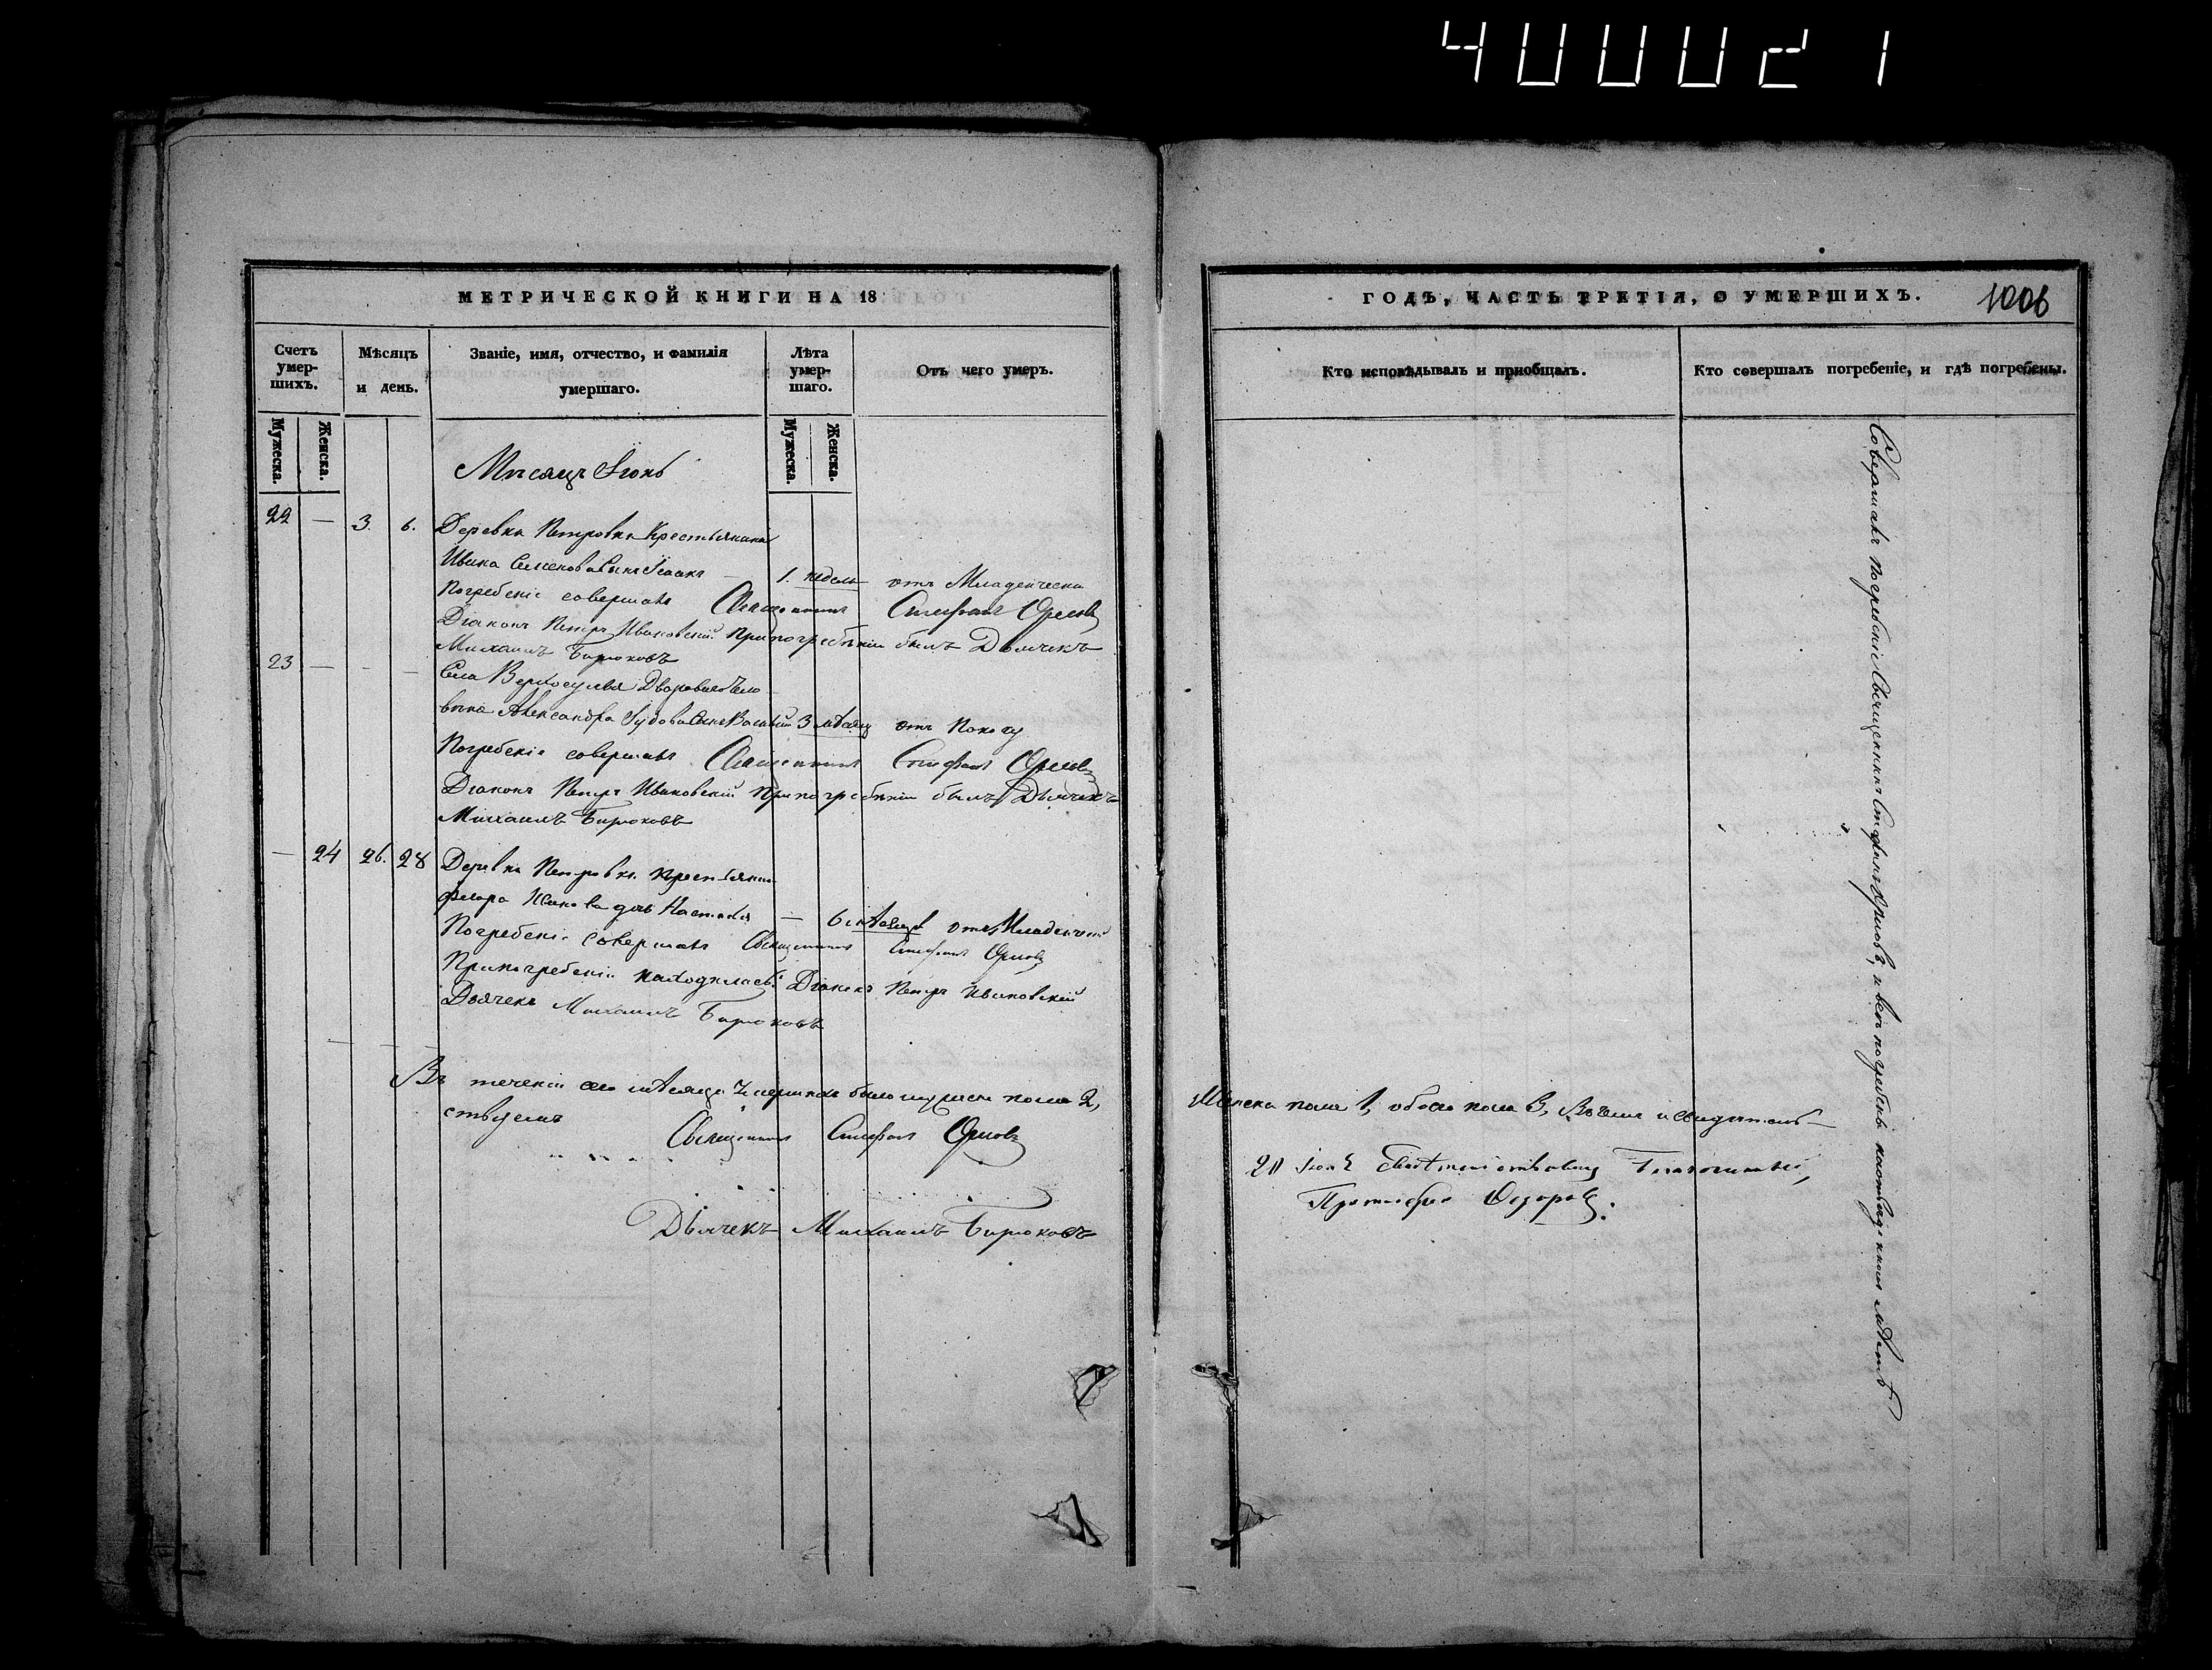 400021
МЕТРИЧЕСКОЙ КНИГИ НА 18
Счетъ умер-шихъ.
Мѣсяцъ и день.
Званіе, имя, отчество, и фамилія умершаго.
Лѣта умер-шаго.
Отъ чего умеръ.
Мужеска.
Женска.
Мужеска.
Женска.
Мѣсяцъ Іюнь
22 — 3. 6. Деревни Петровки Крестьянина
Ивана Семенова Сынъ Исаакъ — 1. недели отъ Младенчески
Погребеніе совершалъ Священникъ Стефанъ Орловъ
Діаконъ Петръ Ивановскій при погребеніи былъ Дьячекъ
Михаилъ Бирюковъ
23 — — — Села Верхосулья Двороваго Чело
века Александра Сынъ Василій 3 мѣсяц отъ Поносу
Погребеніе совершалъ Священникъ Стефанъ Орловъ
Діаконъ Петръ Ивановскій при погребеніи былъ Дьячекъ
Михаилъ Бирюковъ
— 24 26. 28 Деревни Петровки Крестьянина
Флора Иванова дочь Настасія — 6 мѣсяцей отъ Младенчес
Погребеніе совершалъ Священникъ Стефанъ Орловъ
При погребеніи находились: Діаконъ Петръ Ивановскій
Дьячекъ Михаилъ Бирюковъ
Въ теченіи сего мѣсяца Умершихъ было мужеска пола 2,
ствуемъ
Священникъ Стефанъ Орловъ
Дьячекъ Михаилъ Бирюковъ
ГОДЪ, ЧАСТЬ ТРЕТІЯ, О УМЕРШИХЪ.
1006
Кто исповѣдывалъ и пріобщалъ.
Кто совершалъ погребеніе, и гдѣ погребены.
Женска пола 1, обоего пола 3, въ чемъ и свидѣтель—
20 Свидѣтельствовалъ Благочинный,
Протоіерей
Совершалъ погребеніе Священникъ Стефанъ Орловъ, и всѣ погребены на отведенномъ мѣстѣ